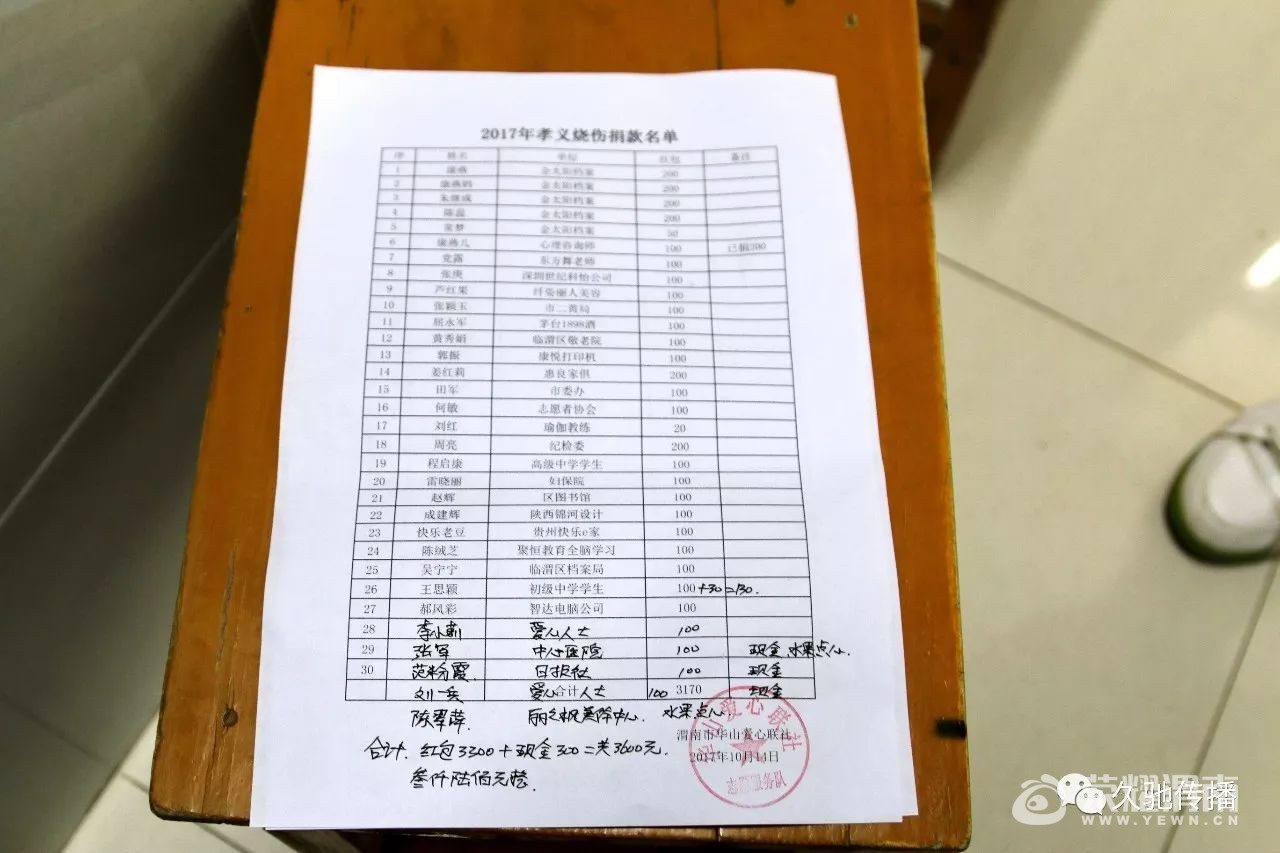 2017年孝义烧伤捐款名单
序 姓名 单位 红包 备注
1 康燕 金太阳档案 200
2 康燕 金太阳档案 200
3 朱继成 金太阳档案 200
4 陈磊 金太阳档案 200
5 梦 金太阳档案 50
6 康燕儿 心理咨询师 100 已捐200
7 党露 东方舞老师 100
8 张庚 深圳世纪科怡公司 100
9 芦红果 纤姿丽人美容 100
10 张颖玉 市二黄局 100
11 屈永军 茅台1898酒 100
12 黄秀娟 临渭区敬老院 100
13 郭振 康悦打印机 100
14 姜红莉 惠良家俱 200
15 田军 市委办 100
16 何敏 志愿者协会 100
17 刘红 瑜伽教练 20
18 周亮 纪检委 200
19 程启康 高级中学学生 100
20 雷晓丽 妇保院 100
21 赵辉 区图书馆 100
22 成建辉 陕西锦河设计 100
23 快乐老豆 贵州快乐e家 100
24 陈绒芝 聚恒教育全脑学习 100
25 吴宁宁 临渭区档案局 100
26 王思颖 初级中学学生 100+30=130.
27 郝风彩 智达电脑公司 100
28 李小莉 爱心人士 100
29 张军 中心医院 100 现金 水果点心.
30 范粉霞 日报社 100 现金
刘一兵 爱心人士 合计 100 3170 现金
陈翠萍. 丽之枫美容中心. 水果点心
渭南市华山爱心联社
合计. 红包3300+现金300=共3600元.
2017年10月14日
叁仟陆佰元整.
华山爱心联社
志愿服务队
荣耀渭南
久驰传播
WWW.YEWN.CN